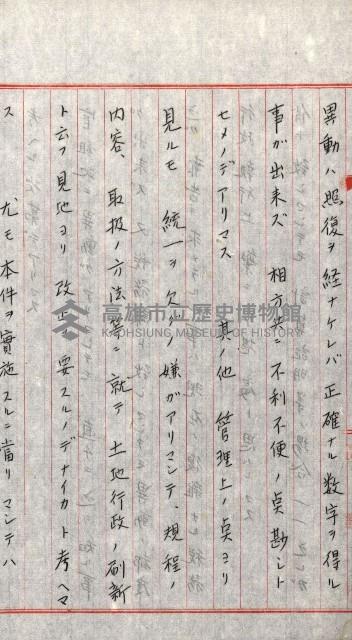 異動ハ照復ヲ経ナケレバ正確ナル数字ヲ得ル
事ガ出来ズ 相方共ニ不利不便ノ点尠シト
セメノデアリマス 其ノ他 管理上ノ点ヨリ
見ルモ 統一ヲ欠グノ嫌ガアリマシテ、規程ノ
内容、取扱ノ方法等ニ就テ 土地行政ノ刷新
ト云フ見地ヨリ 改正ヲ要スルノデナイカト考ヘマ
ス 尤モ本件ヲ實施スルニ當リ マシテハ
高雄市立歷史博物館
KAOHSIUNG MUSEUM OF HISTORY